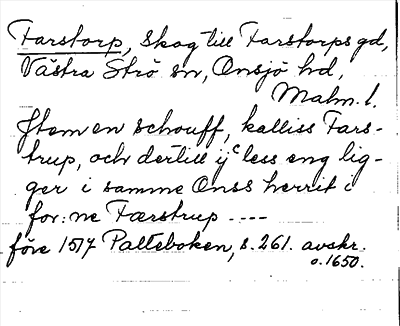 Farstorp, skog till Farstorps gd,
Västra Strö sn, Onsjö hd,
Malm. l.
Jtem en schouff, kalliss Fars-
trup, och dertill ijc less eng lig-
ger i samme Onss herrit i
for:ne Færstrup ----
före 1517 Palteboken, s. 261. avskr.
o. 1650.